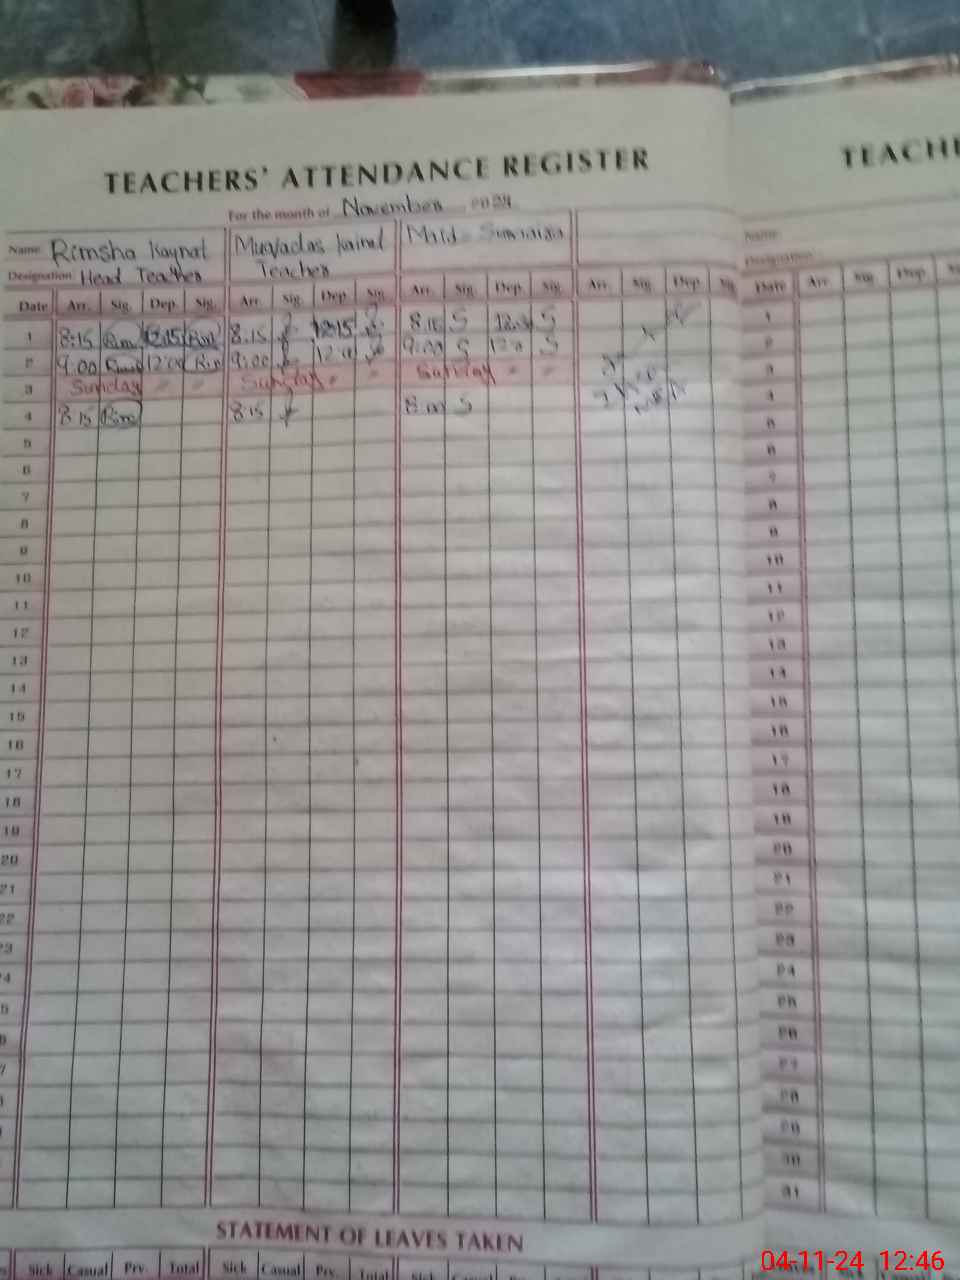 TEACHERS' ATTENDANCE REGISTER
TEACHE
For the month of November 2024
Name Rimsha Kaynat Muqadas kainat Maid - Sumaira
Name
Designation Head Teacher Teacher
Designation
Date Arr. Sig. Dep. Sig. Arr. Sig. Dep. Sig. Arr. Sig. Dep. Sig. Arr. Sig. Dep. Sig. Date Arr. Sig. Dep.
1 8:15 Rim 12:15 Rim 8:15 12:15 S S 1
2 9:00 12:00 Rim 9:00 9:00 S S 2
3 Sunday " " Sunday " " Sunday " " 3
4 8:15 Rim 8:15 S 4
5
6
7
8
9
10 10
11 11
12 12
13 13
14 14
15 15
16 16
17 17
18 18
19 19
20 20
21 21
22 22
23 23
24 24
25 25
26 26
27 27
28
29
30
31
STATEMENT OF LEAVES TAKEN
Sick Casual Prv. Total Sick Casual Prv. Total Sick Casual Prv. Total
04-11-24 12:46